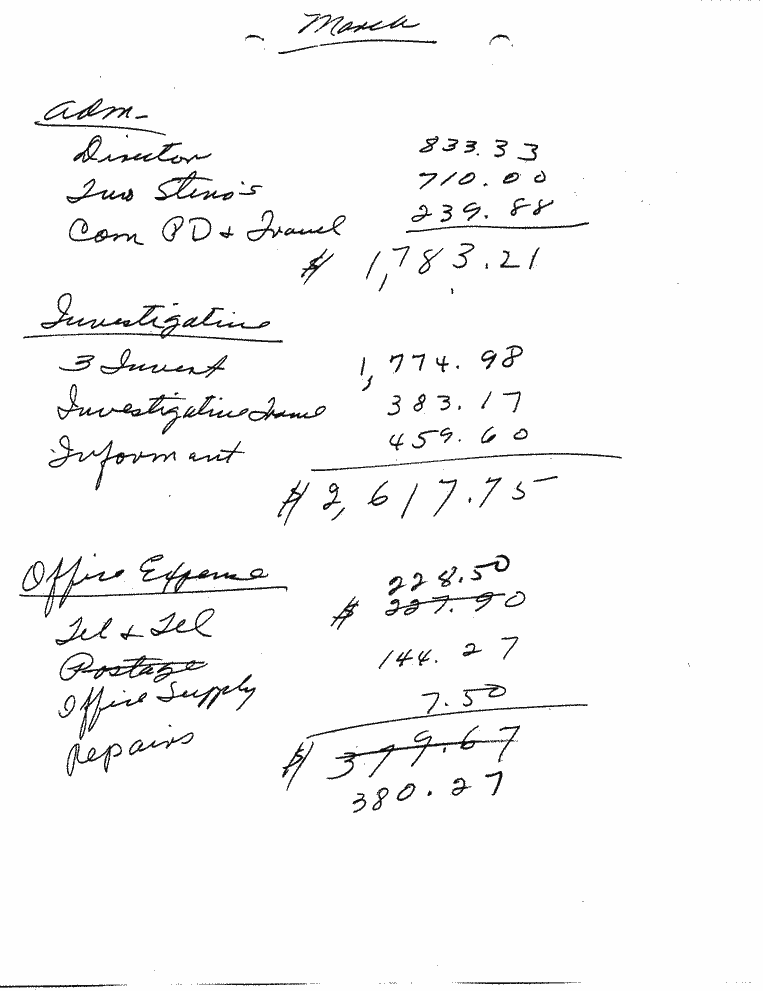 March
Adm-
Director 833.33
Two Steno's 710.00
Com PD & Travel 239.88
$ 1,783.21
Investigative
3 Invest 1,774.98
Investigative Travel 383.17
Informant 459.60
$ 2,617.75
Office Expense 228.50
Tel & Tel $ 227.90
Postage
Office Supply 144.27
repairs 7.50
$ 379.67
380.27